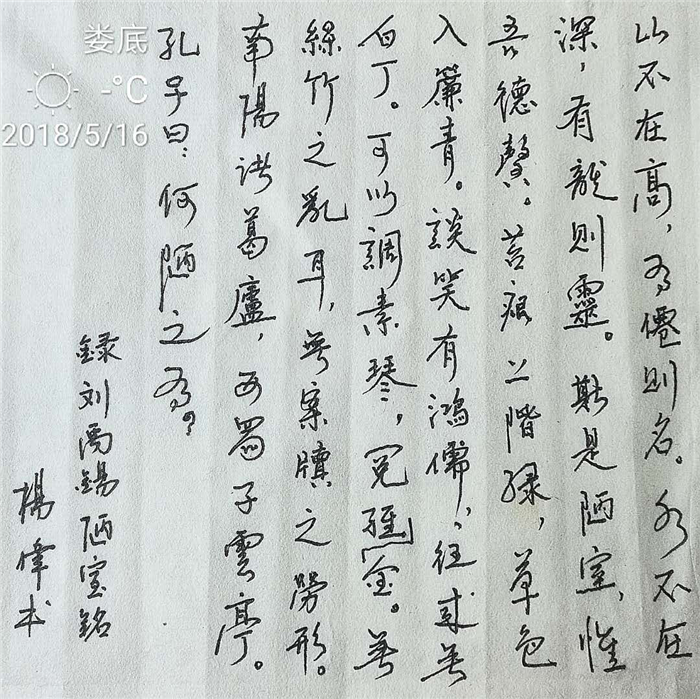 娄底
-°C
2018/5/16
山不在高，有僊則名。水不在
深，有龍則靈。斯是陋室，惟
吾德馨。苔痕上階緑，草色
入簾青。談笑有鴻儒，往来無
白丁。可以調素琴，金。無
絲竹之亂耳，無案牘之勞形。
南陽諸葛廬，西蜀子雲亭。
孔子曰：何陋之有？
録刘禹錫陋室銘
楊偉书